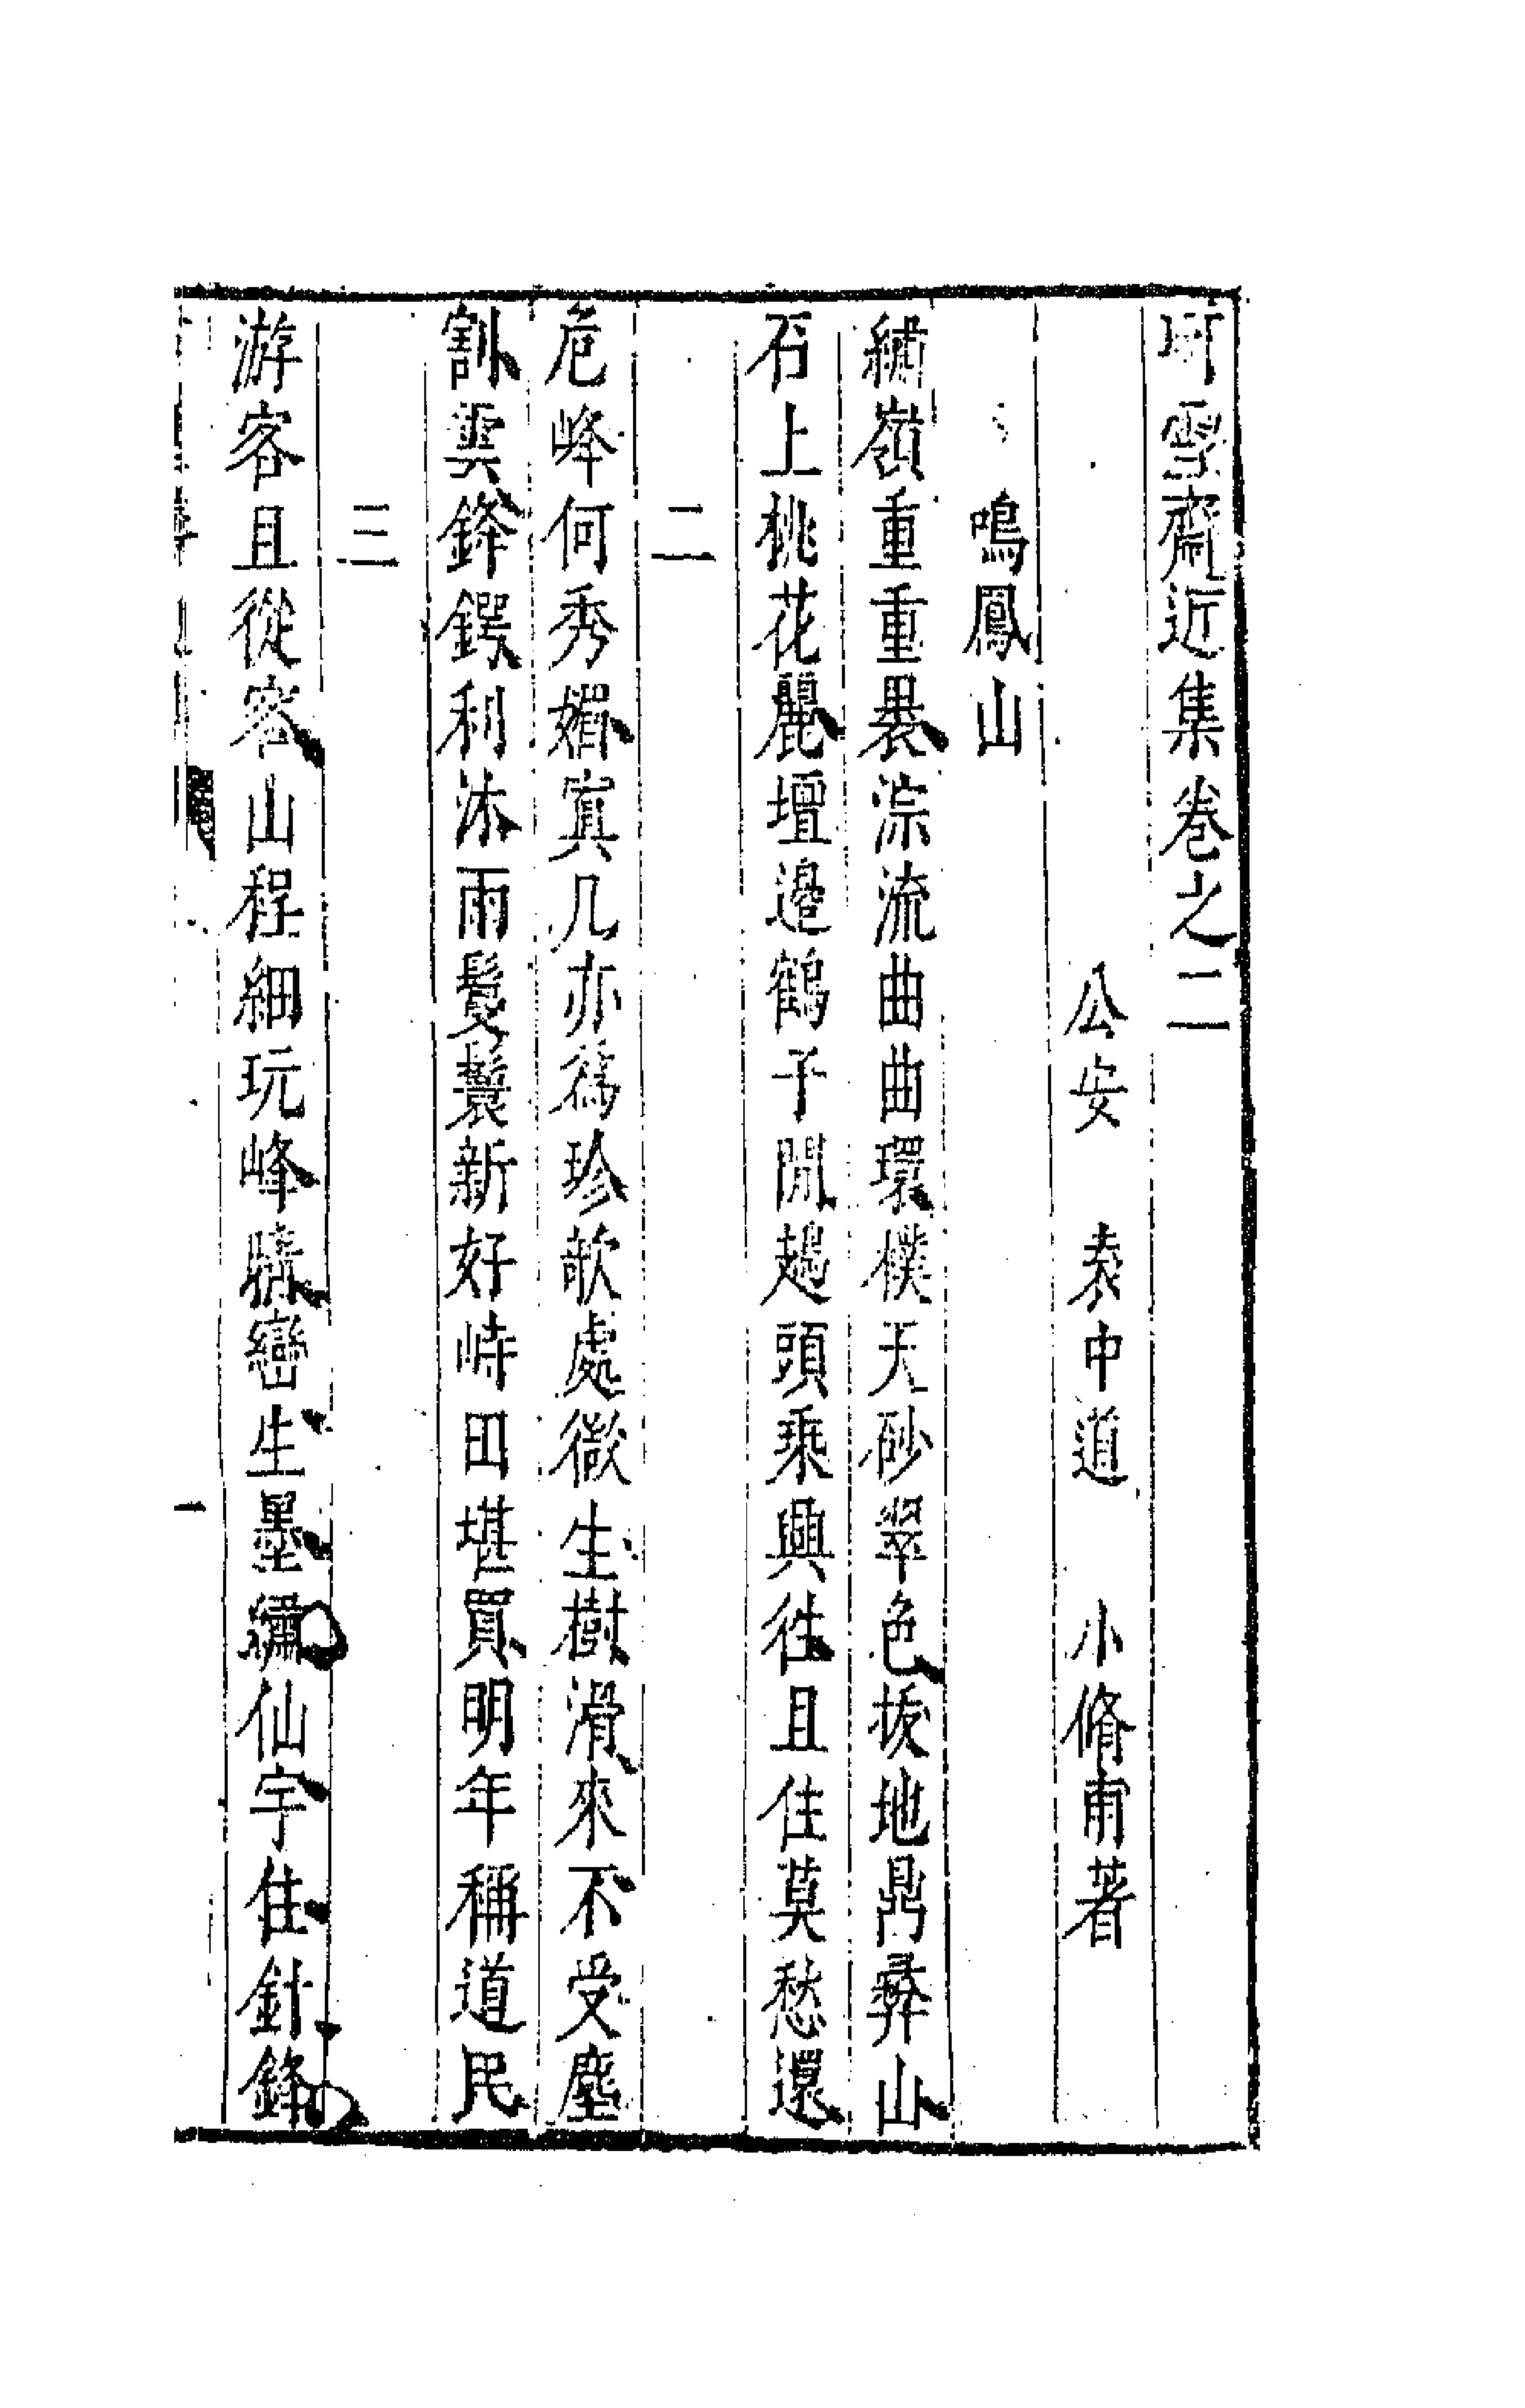 珂雪齋近集卷之二
公安 袁中道 小脩甫著
鳴鳳山
繡嶺重重畏淙流曲曲環樸天砂翠色拔地鼎彞山
石上桃花麗壇邊鶴子閒趨頭乘興徃且住莫愁還
二
危峰何秀媚寘几亦為珍欹處㣲生樹滑來不受塵
割雲鋒鍔利沐雨鬓鬟新好峙田堪買明年稱道民
三
游客且從容山程細玩峰晴巒生墨繡仙宇住針鋒